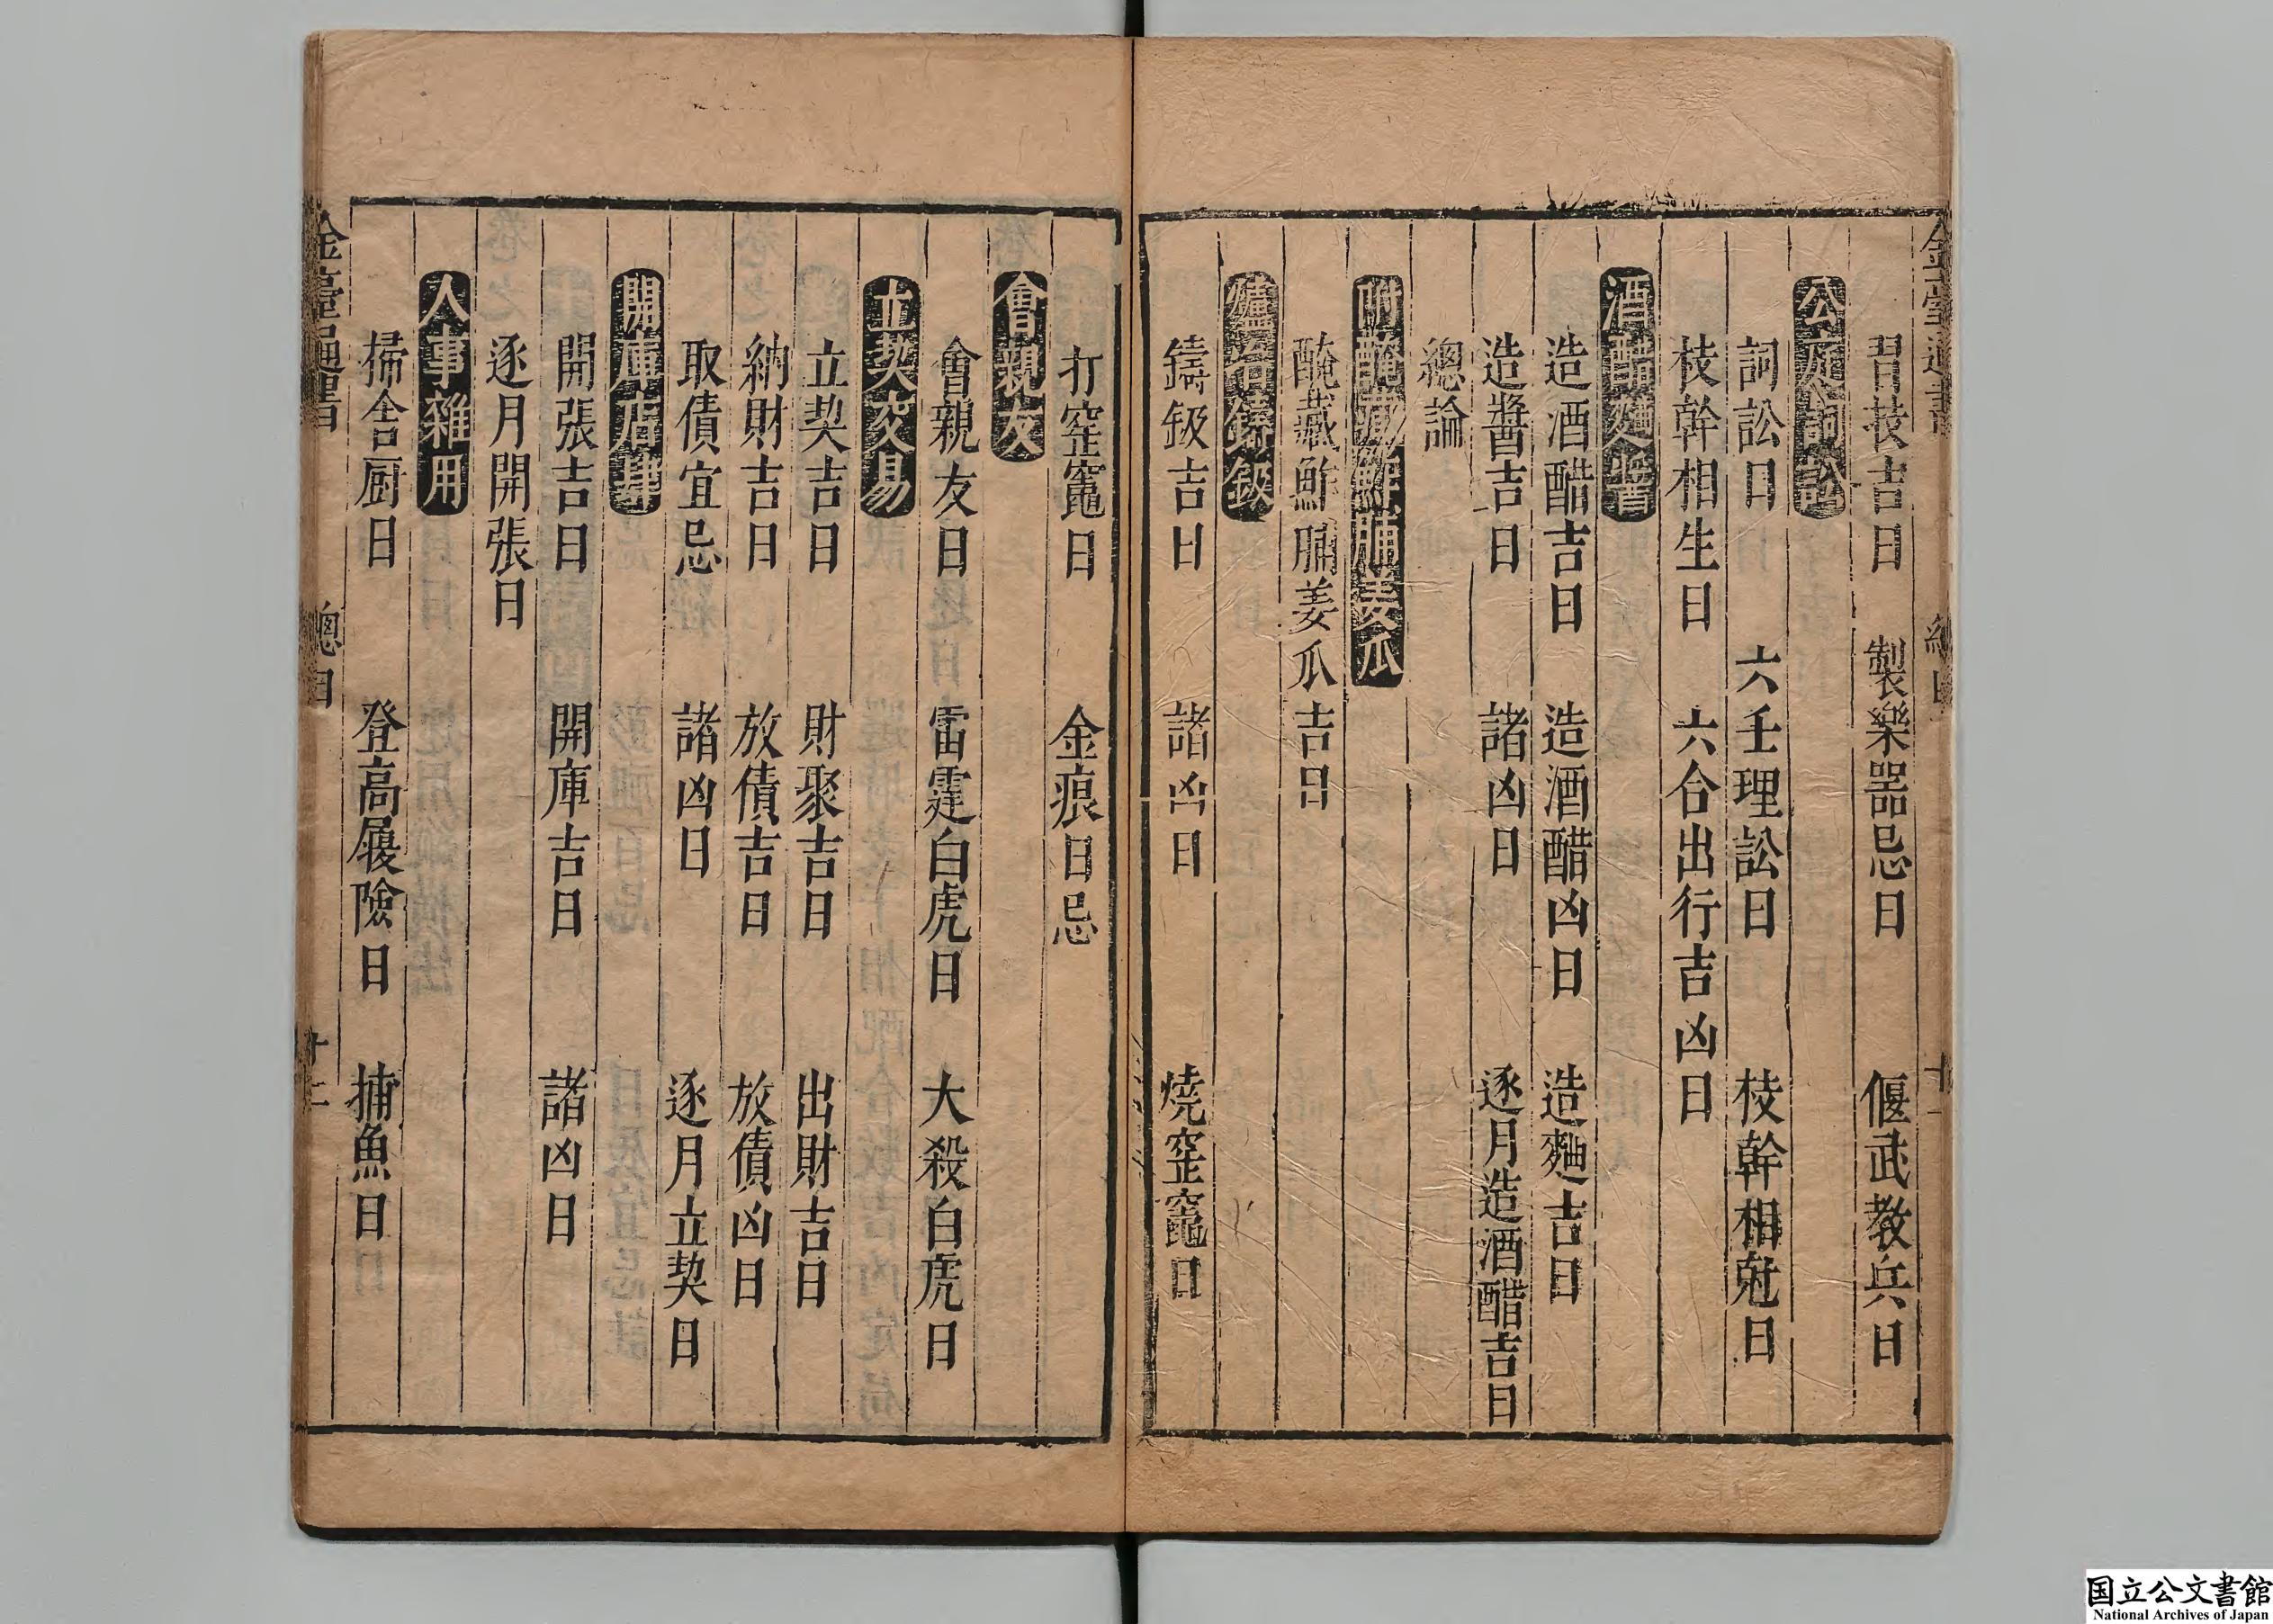 習技吉日　製樂器忌日　偃武教兵日
公庭詞訟
詞訟日　六壬理訟日　枝幹相尅日
枝幹相生日　六合出行吉凶日
酒醋麯醬
造酒醋吉日　造酒醋凶日　造麯吉日
造醬吉日　諸凶日　逐月造酒醋吉日
總論
附醃藏鮓脯姜瓜
醃藏鮓脯姜瓜吉日
爐冶鑄鈒
鑄鈒吉日　諸凶日　燒窑竈日
打窑竈日　金痕日忌
會親友
會親友日　雷霆白虎日　大殺白虎日
立契交易
立契吉日　財聚吉日　出財吉日
納財吉日　放債吉日　放債凶日
取債宜忌　諸凶日　逐月立契日
開庫店肆
開張吉日　開庫吉日　諸凶日
逐月開張日
人事雜用
掃舍厨日　登高履險日　捕魚日
總目　十二
国立公文書館
National Archives of Japan